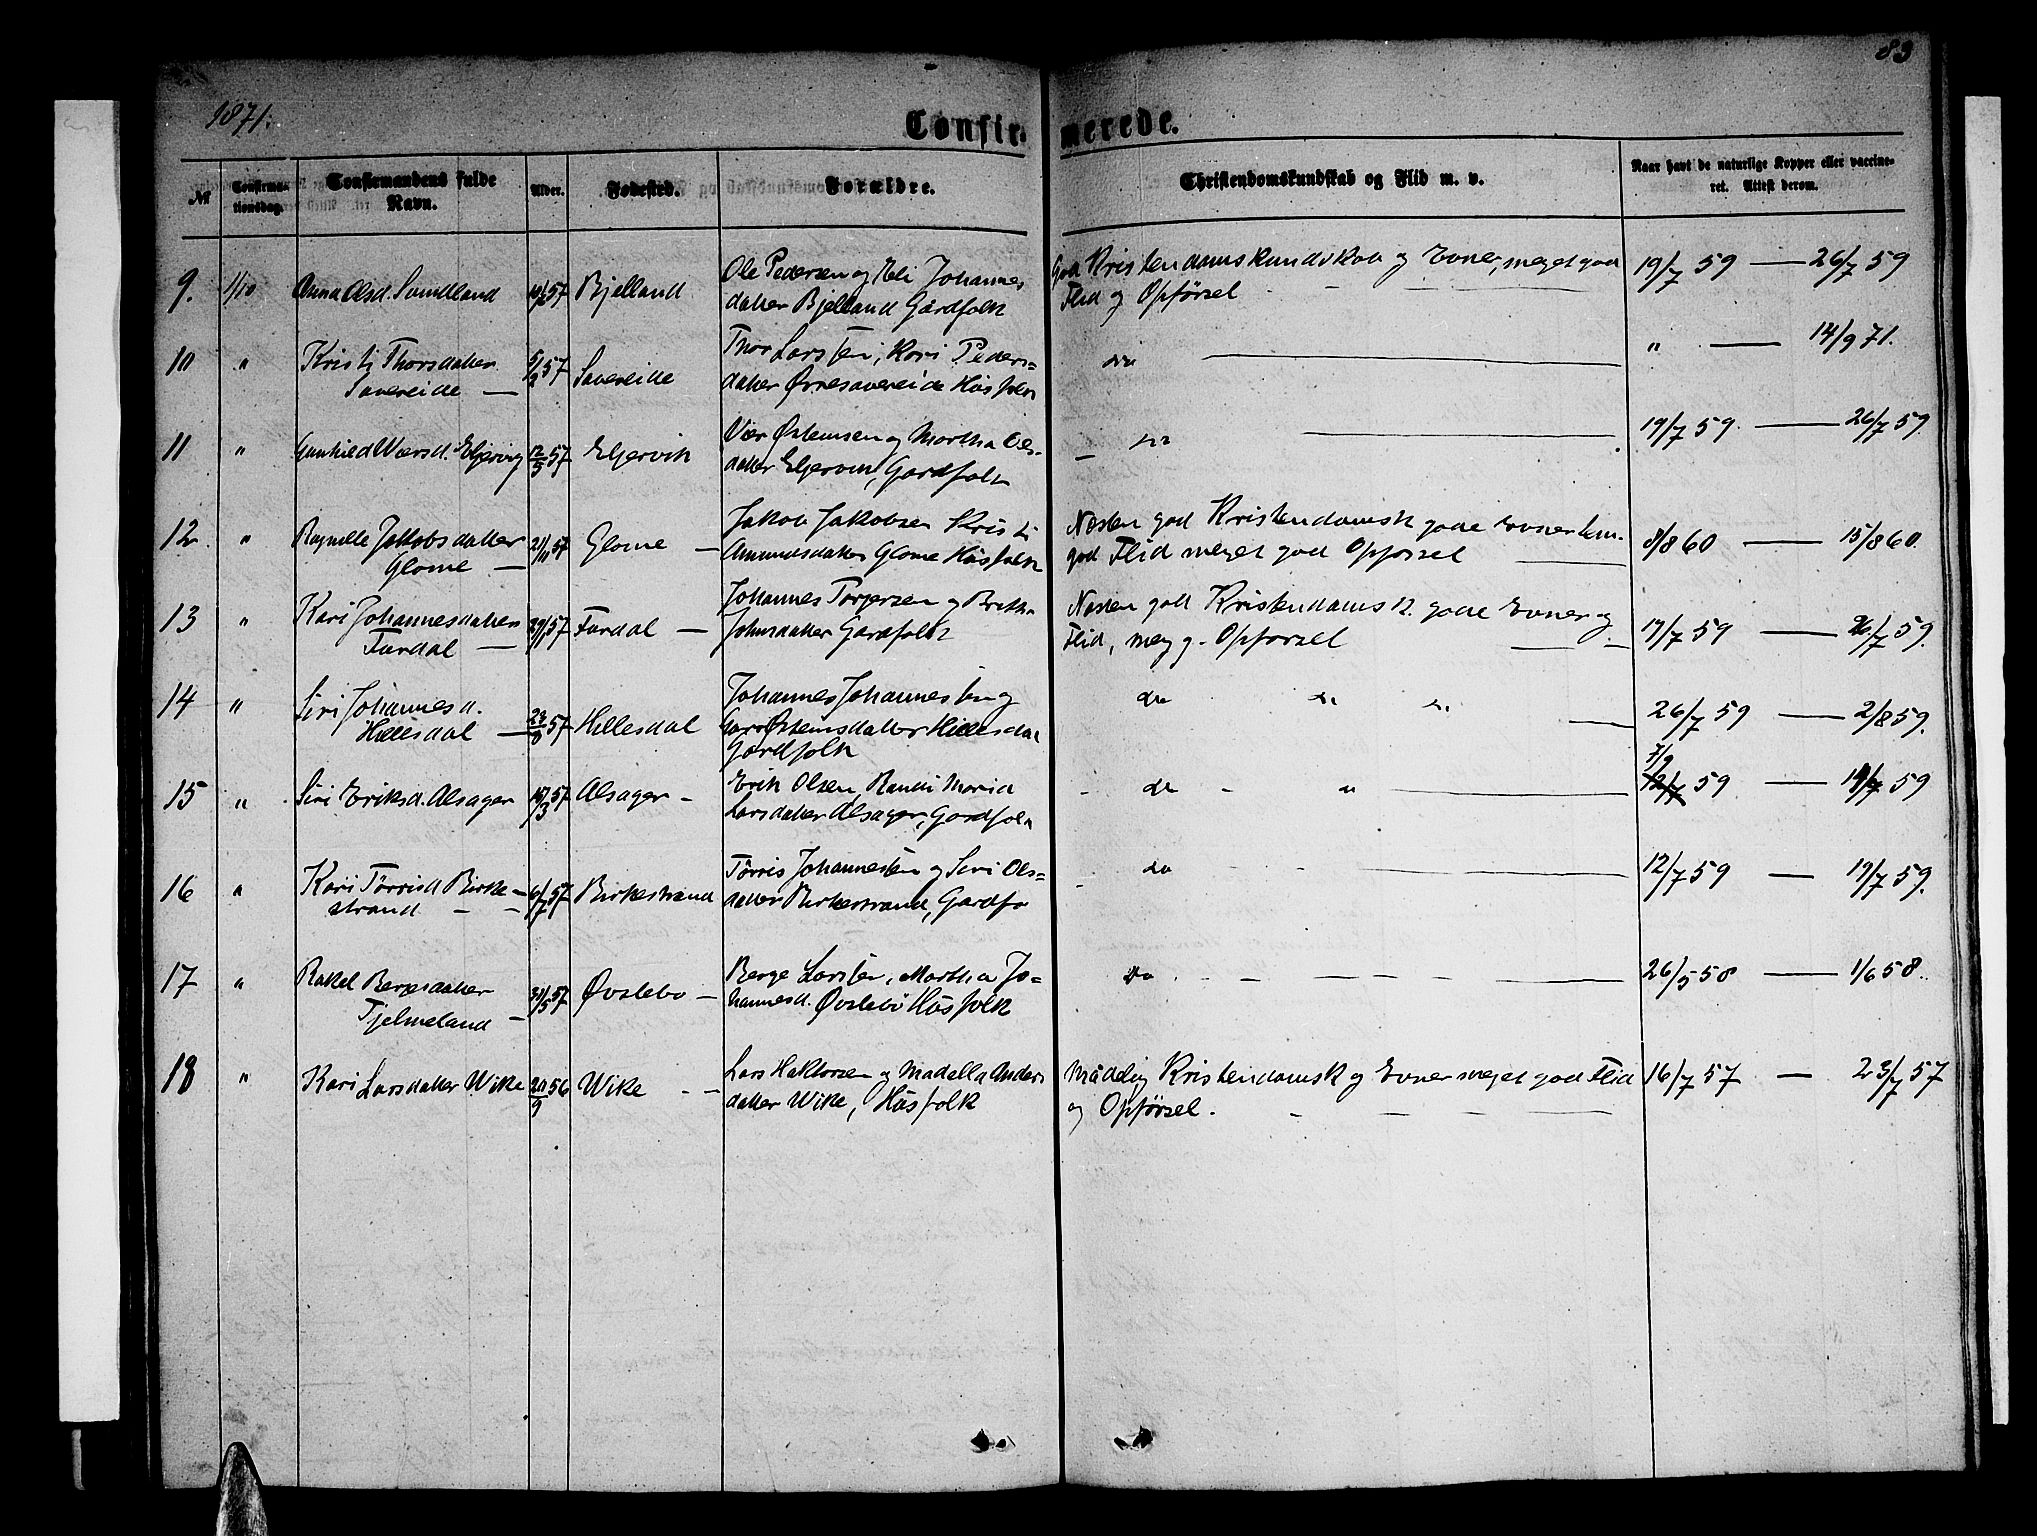 83
1871.
Confirmerede.
№ Confirmationsdag. Confirmandens fulde Navn. Alder. Fødested. Forældre. Christendomskundskab og Flid m. v. Naar havt de naturlige Kopper eller vaccineret. Attest derom.
9. 1/10 Anna Olsd. Bjelland Ole Pedersen og Eli Johannes God Kristendomskundskab og Evner, meget god 19/7 59 — 26/7 59
datter Bjelland Gårdfolk Flid og Opførsel
10 " Kristi Thorsdatter 5/2 57 Savereide Thor Larsen, Kari Peders= do " — 14/9 71.
Savereide — datter Øvresavereide Husfolk
11 " Gunhild 12/5 57 Eljervik og Martha Ols= do 19/7 59 — 26/7 59
datter Eljervik, Gardfolk
12 " Ragnilde Jakobsdatter 21/11 57 Glome — Jakob Jakobsen Kristi Næsten god Kristendomsk gode Evner tem.
Glome — Amundsdatter Glome Husfolk god Flid meget god Opførsel 8/8 60 — 15/8 60.
13 " Kari Johannesdatter 29/11 57 Fardal — Johannes Torgersen og Britha Næsten god Kristendomsk. gode Evner og
Fardal — Johnsdatter Gardfolk Flid, meg g. Opførsel 19/7 59 — 26/7 59.
14 " Siri Johannesd. Johannes Johannesen og do do do
Hillesdal — 57 Hillesdal Østensdatter Hillesdal 26/7 59 — 2/8 59.
Gardfolk
7/9
15 " Siri Eriksd. Alsager 57 Alsager - Erik Olsen, Randi Maria - do - " 12/7 59 — 59
Larsdatter Alsager, Gardfolk
16 " Kari Tørrisd Birke= 6/7 57 Birkestrand Tørris Johannesen og Siri Ols= do 12/7 59 — 19/7 59.
strand datter Birkestrand, Gardfo
17 " Rakel Bergesdatter 31/5 57 Øvslebo — Berge Larsen, Martha Jo= do 26/5 58 — 1/6 58.
Tjelmeland — hannesd. Øvslebö Husfolk
18 " Kari Larsdatter Wike 20/9 56 Wike Lars Haktorsen og Madella Anders Mådelig Kristendomsk og Evner meget god Flid 16/7 57 — 23/7 57
datter Wike, Husfolk og Opførsel.